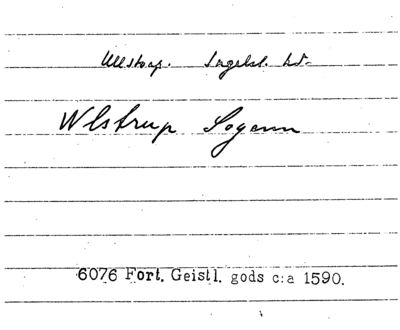 Ullstorp. Ingelst. hd.
Wlstrup Sogenn
6076 Fort. Geistl. gods c:a 1590.